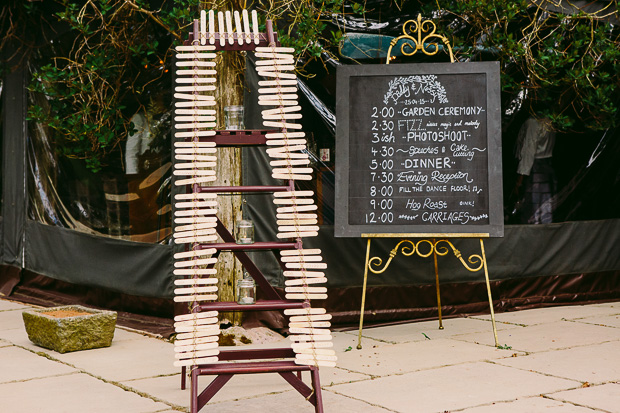 2:00 -GARDEN CEREMONY-
2:30 FIZZ
3ish -PHOTOSHOOT-
4:30 Speeches & Cake Cutting
5:00 -DINNER-
7:30 Evening Reception
8:00 FILL THE DANCE FLOOR!
9:00 Hog Roast OINK!
12:00 CARRIAGES